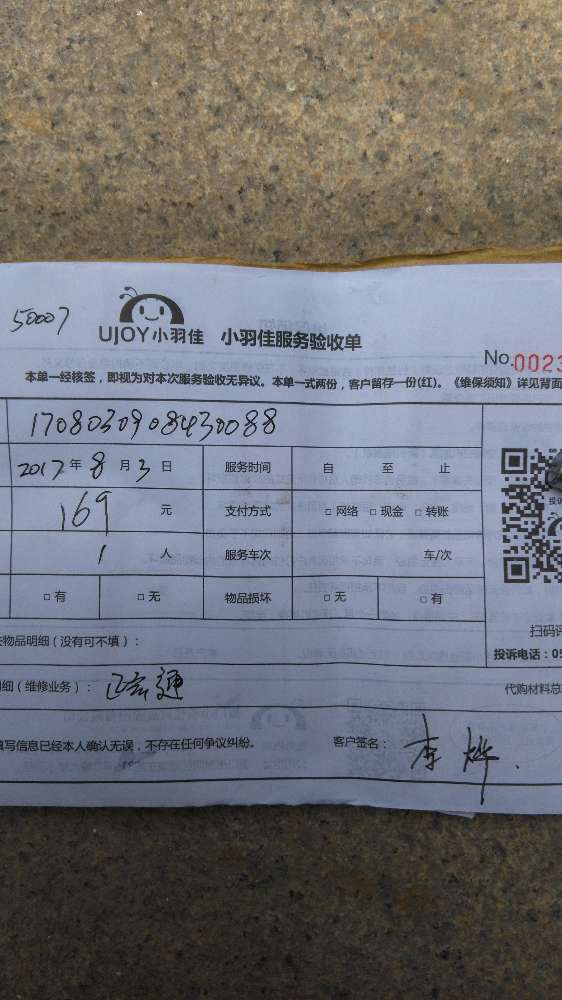 50007
UJOY小羽佳 小羽佳服务验收单
No.0023
本单一经核签，即视为对本次服务验收无异议。本单一式两份，客户留存一份(红)。《维保须知》详见背面
170803090843008​8
2017年8月3日 服务时间 自 至 止
169 元 支付方式 □网络 □现金 □转账
1 人 服务车次 车/次
□有 □无 物品损坏 □无 □有
物品明细（没有可不填）：
扫码评
投诉电话：05
细（维修业务）： 通
代购材料总
填写信息已经本人确认无误，不存在任何争议纠纷。 客户签名： 李烨